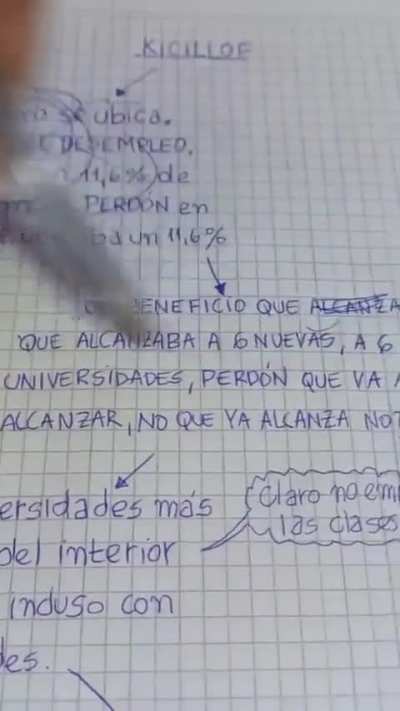 KICILLOF
se ubica.
DESEMPLEO.
11,6% de
PERDÓN en
un 11,6%
BENEFICIO QUE ALCANZA
QUE ALCANZABA A 6 NUEVAS, A 6
UNIVERSIDADES, PERDÓN QUE VA A
ALCANZAR, NO QUE YA ALCANZA NO
ersidades más
del interior
Claro no em
las clases
incluso con
des.